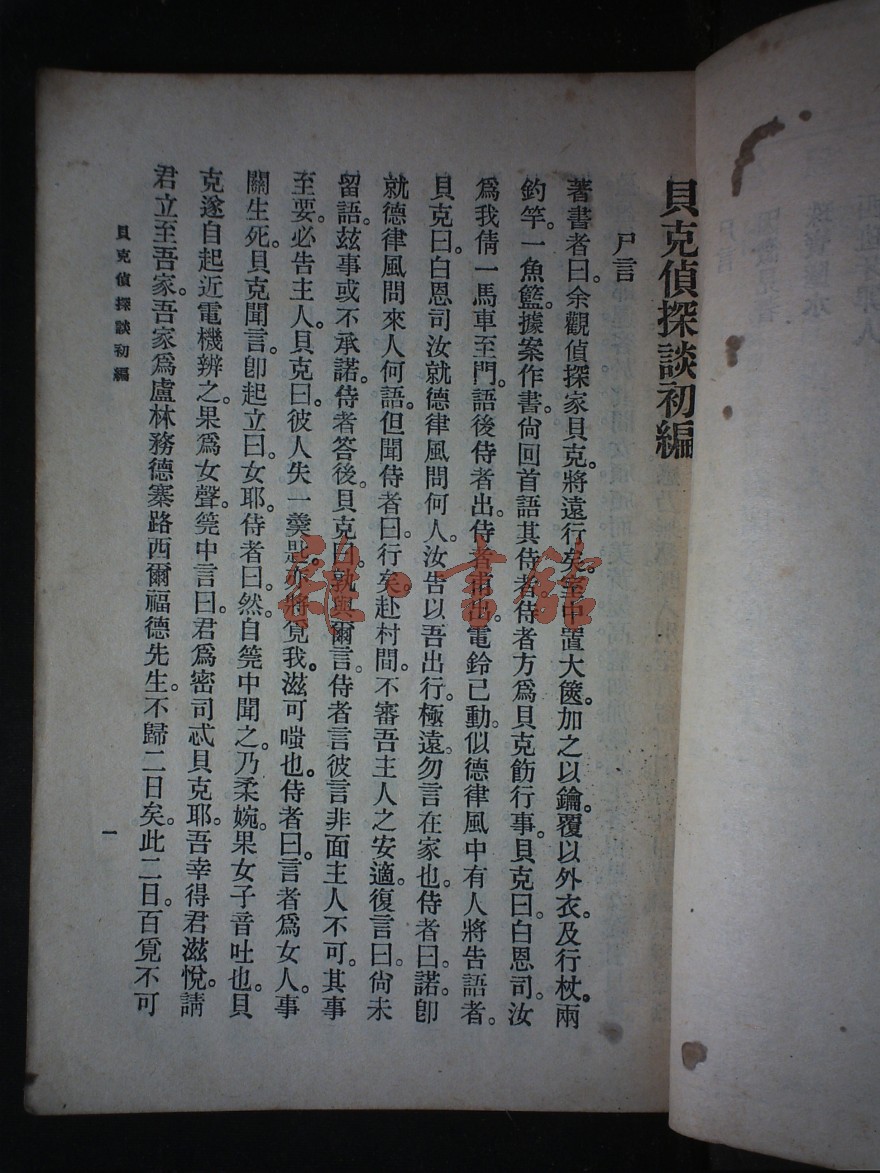 貝克偵探談初編
尸言
著書者曰。余觀偵探家貝克。將遠行矣。室中置大篋。加之以鑰。覆以外衣。及行杖。兩
釣竿。一魚籃。據案作書。尙回首語其侍者。侍者方爲貝克飭行事。貝克曰。白恩司。汝
爲我倩一馬車至門。語後侍者出。侍者甫出。電鈴已動。似德律風中有人將告語者。
貝克曰。白恩司汝就德律風問何人。汝告以吾出行。極遠。勿言在家也。侍者曰。諾。卽
就德律風問來人何語。但聞侍者曰。行矣。赴村間。不審吾主人之安適。復言曰。尙未
留語。玆事或不承諾。侍者答後。貝克曰。孰與爾言。侍者言彼言非面主人不可。其事
至要。必告主人。貝克曰。彼人失一羹匙。亦將覓我。滋可嗤也。侍者曰。言者爲女人。事
關生死。貝克聞言。卽起立曰。女耶。侍者曰。然。自筦中聞之。乃柔婉。果女子音吐也。貝
克遂自起近電機辨之。果爲女聲。筦中言曰。君爲密司忒貝克耶。吾幸得君滋悅。請
君立至吾家。吾家爲盧林務德寨路西爾福德先生。不歸二日矣。此二日。百覓不可
貝克偵探談初編
一